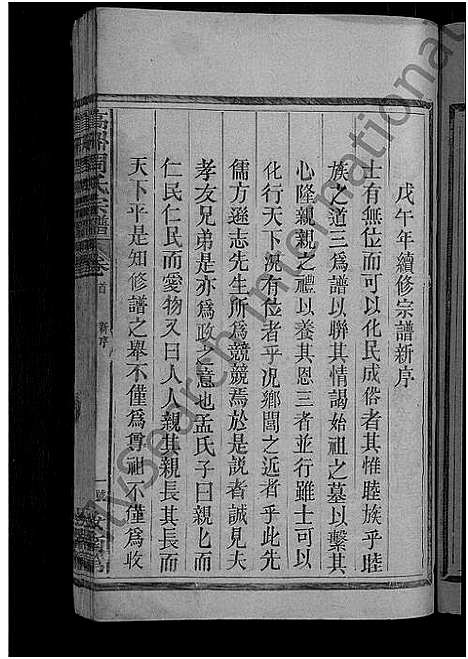 戊午年續修宗譜新序
士有無位而可以化民成俗者其惟睦族乎睦
族之道三為譜以聯其情謁始祖之墓以繫其
心隆親親之禮以養其恩三者並行雖士可以
化行天下況有位者乎況鄉閭之近者乎此先
儒方遜志先生所為競競焉於是說者誠見夫
孝友兄弟是亦為政之意也孟氏子曰親親而
仁民仁民而愛物又曰人人親其親長其長而
天下平是知修譜之舉不僅為尊祖不僅為收
周氏宗譜
卷首
新序
一號
MySearch International